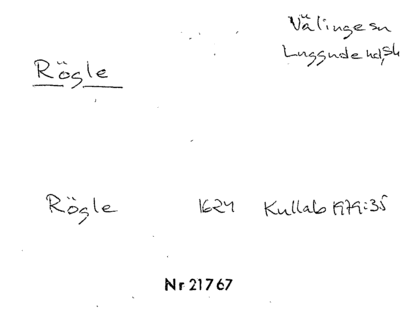 Välinge sn
Luggude hd, Sk
Rögle
Rögle 1624 Kullab 1979:35
Nr 21767